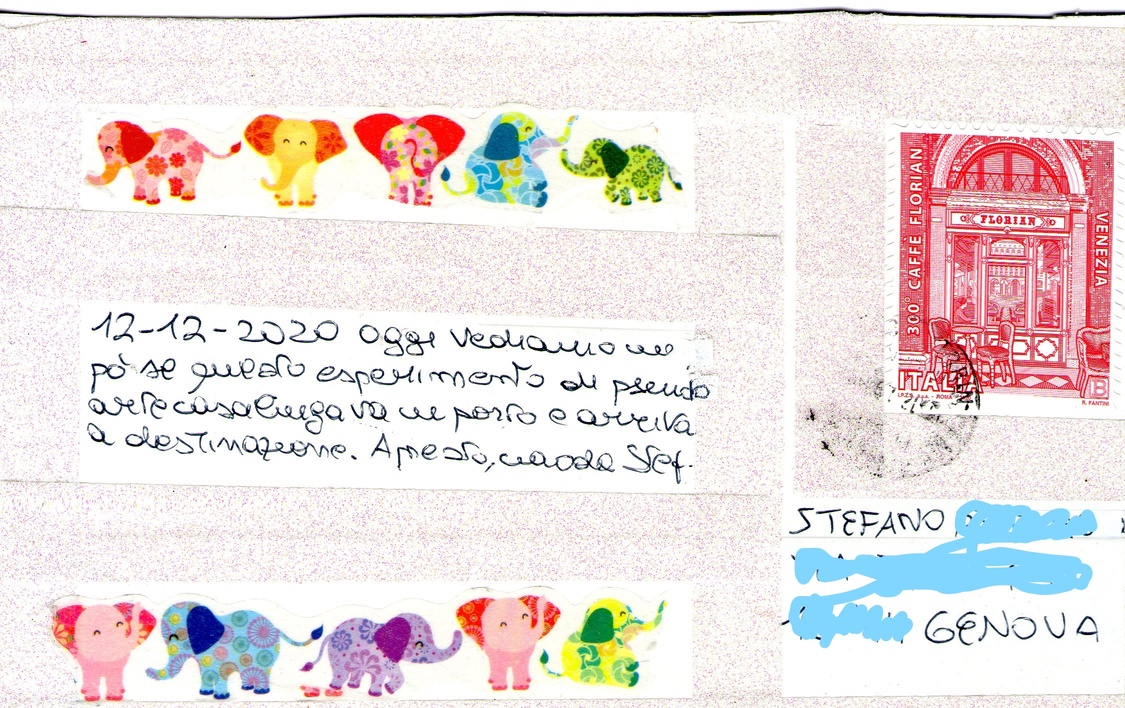 12-12-2020 oggi vediamo un
pò se questo esperimento di pseudo
arte casalinga va in porto e arriva
a destinazione. A presto, ciao da Stef.
300° CAFFÈ FLORIAN
FLORIAN
VENEZIA
ITALIA
B
I.P.Z.S. S.p.A. - ROMA
R. FANTINI
STEFANO
GENOVA